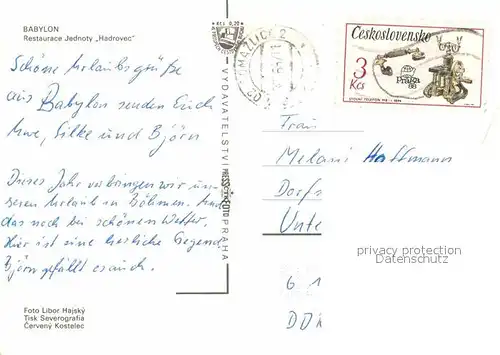 BABYLON
Restaurace Jednoty „Hadrovec"
Schöne Urlaubsgrüße
aus Babylon senden Euch
Uwe, Silke und Björn
Dieses Jahr verbringen wir un-
seren Urlaub in Böhmen. Und
das noch bei schönem Wetter.
Hier ist eine herrliche Gegend
Björn gefällt es auch.
Foto Libor Hajský
Tisk Severografia
Červený Kostelec
Kčs 0,20
VYDAVATELSTVÍ PRESSFOTO PRAHA
DOMAŽLICE 2
Československo
3
Kčs
Praga
88
Frau
Melani Hoffmann
Dorfs
Unte
privacy protection
Datenschutz
6 1
DDR